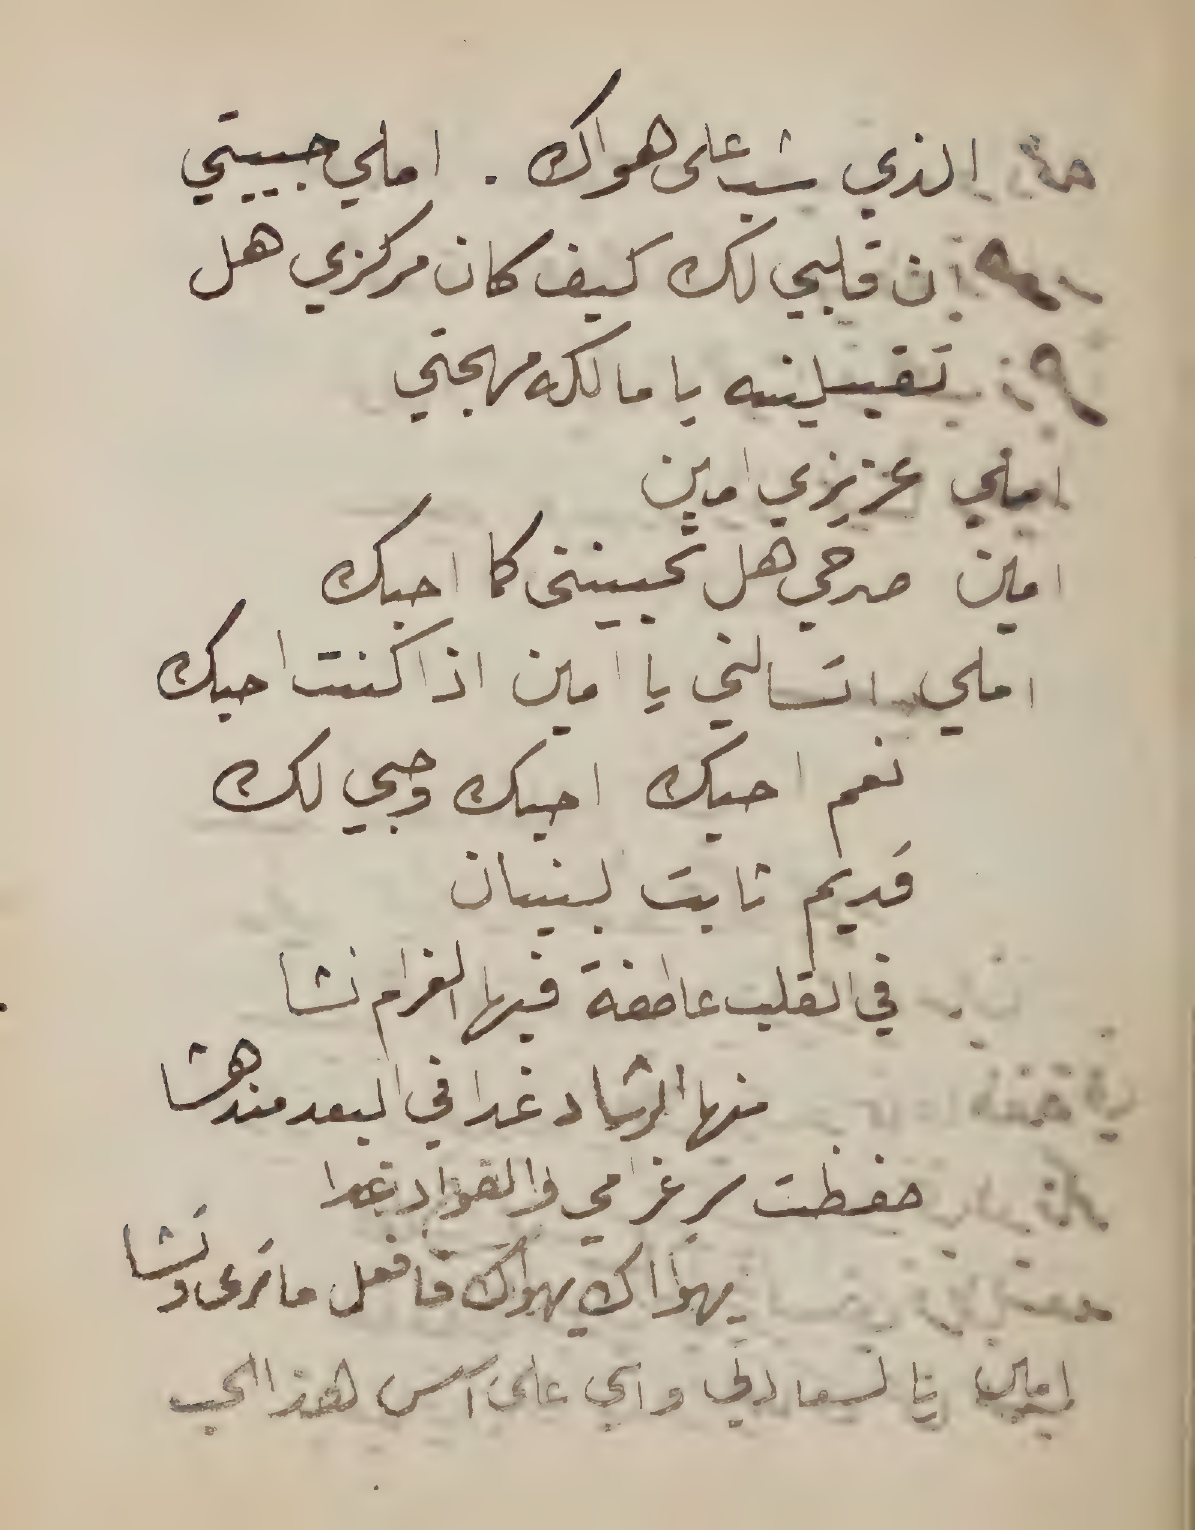 الذي شب على هواك . املي حبيبتي
ان قلبي لك كيف كان مركزي هل
تقبلينه يا مالكه مهجتي
املي عزيزي امين
امين صرحي هل تحبينني كما احبك
املي اتسالني يا امين اذا كنت احبك
نعم احبك احبك وحبي لك
قديم ثابت لبنيان
في القلب عاطفة فيها الغرام نشا
منها الرشاد غدا في البعد مندهشا
حفظت سر غرامي والفواد بدا
يهواك يهواك فافعل ما ترى وتشا
امين يا لسعادتي واي على اسس لهذا الحب